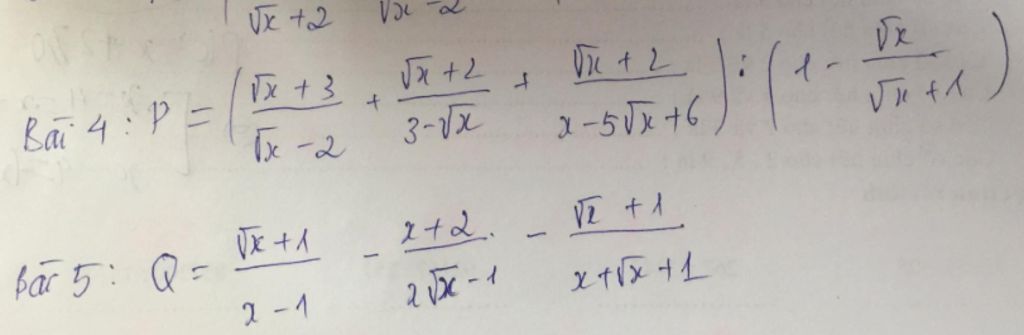 √x + 2 √x - 2
Bài 4 : P = ( (√x + 3)/(√x - 2) + (√x + 2)/(3 - √x) + (√x + 2)/(x - 5√x + 6) ) : ( 1 - √x/(√x + 1) )
Bài 5 : Q = (√x + 1)/(x - 1) - (x + 2)/(x√x - 1) - (√x + 1)/(x + √x + 1)